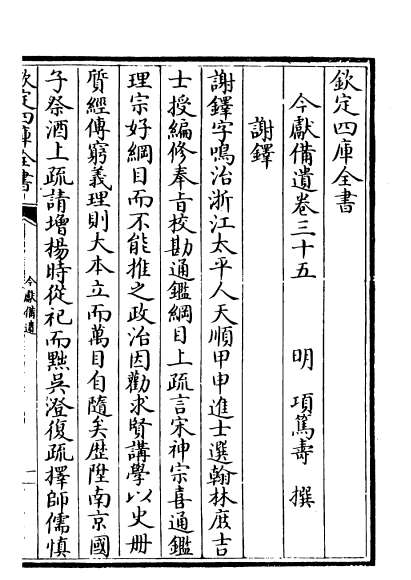 欽定四庫全書
今獻備遺卷三十五 明 項篤壽 撰
謝鐸
謝鐸字鳴治浙江太平人天順甲申進士選翰林庶吉
士授編修奉㫖校勘通鑑綱目上疏言宋神宗喜通鑑
理宗好綱目而不能推之政治因勸求賢講學以史册
質經傳窮義理則大本立而萬目自隨矣歴陞南京國
子祭酒上疏請增楊時從祀而黜吳澄復疏擇師儒慎
欽定四庫全書
今獻備遺